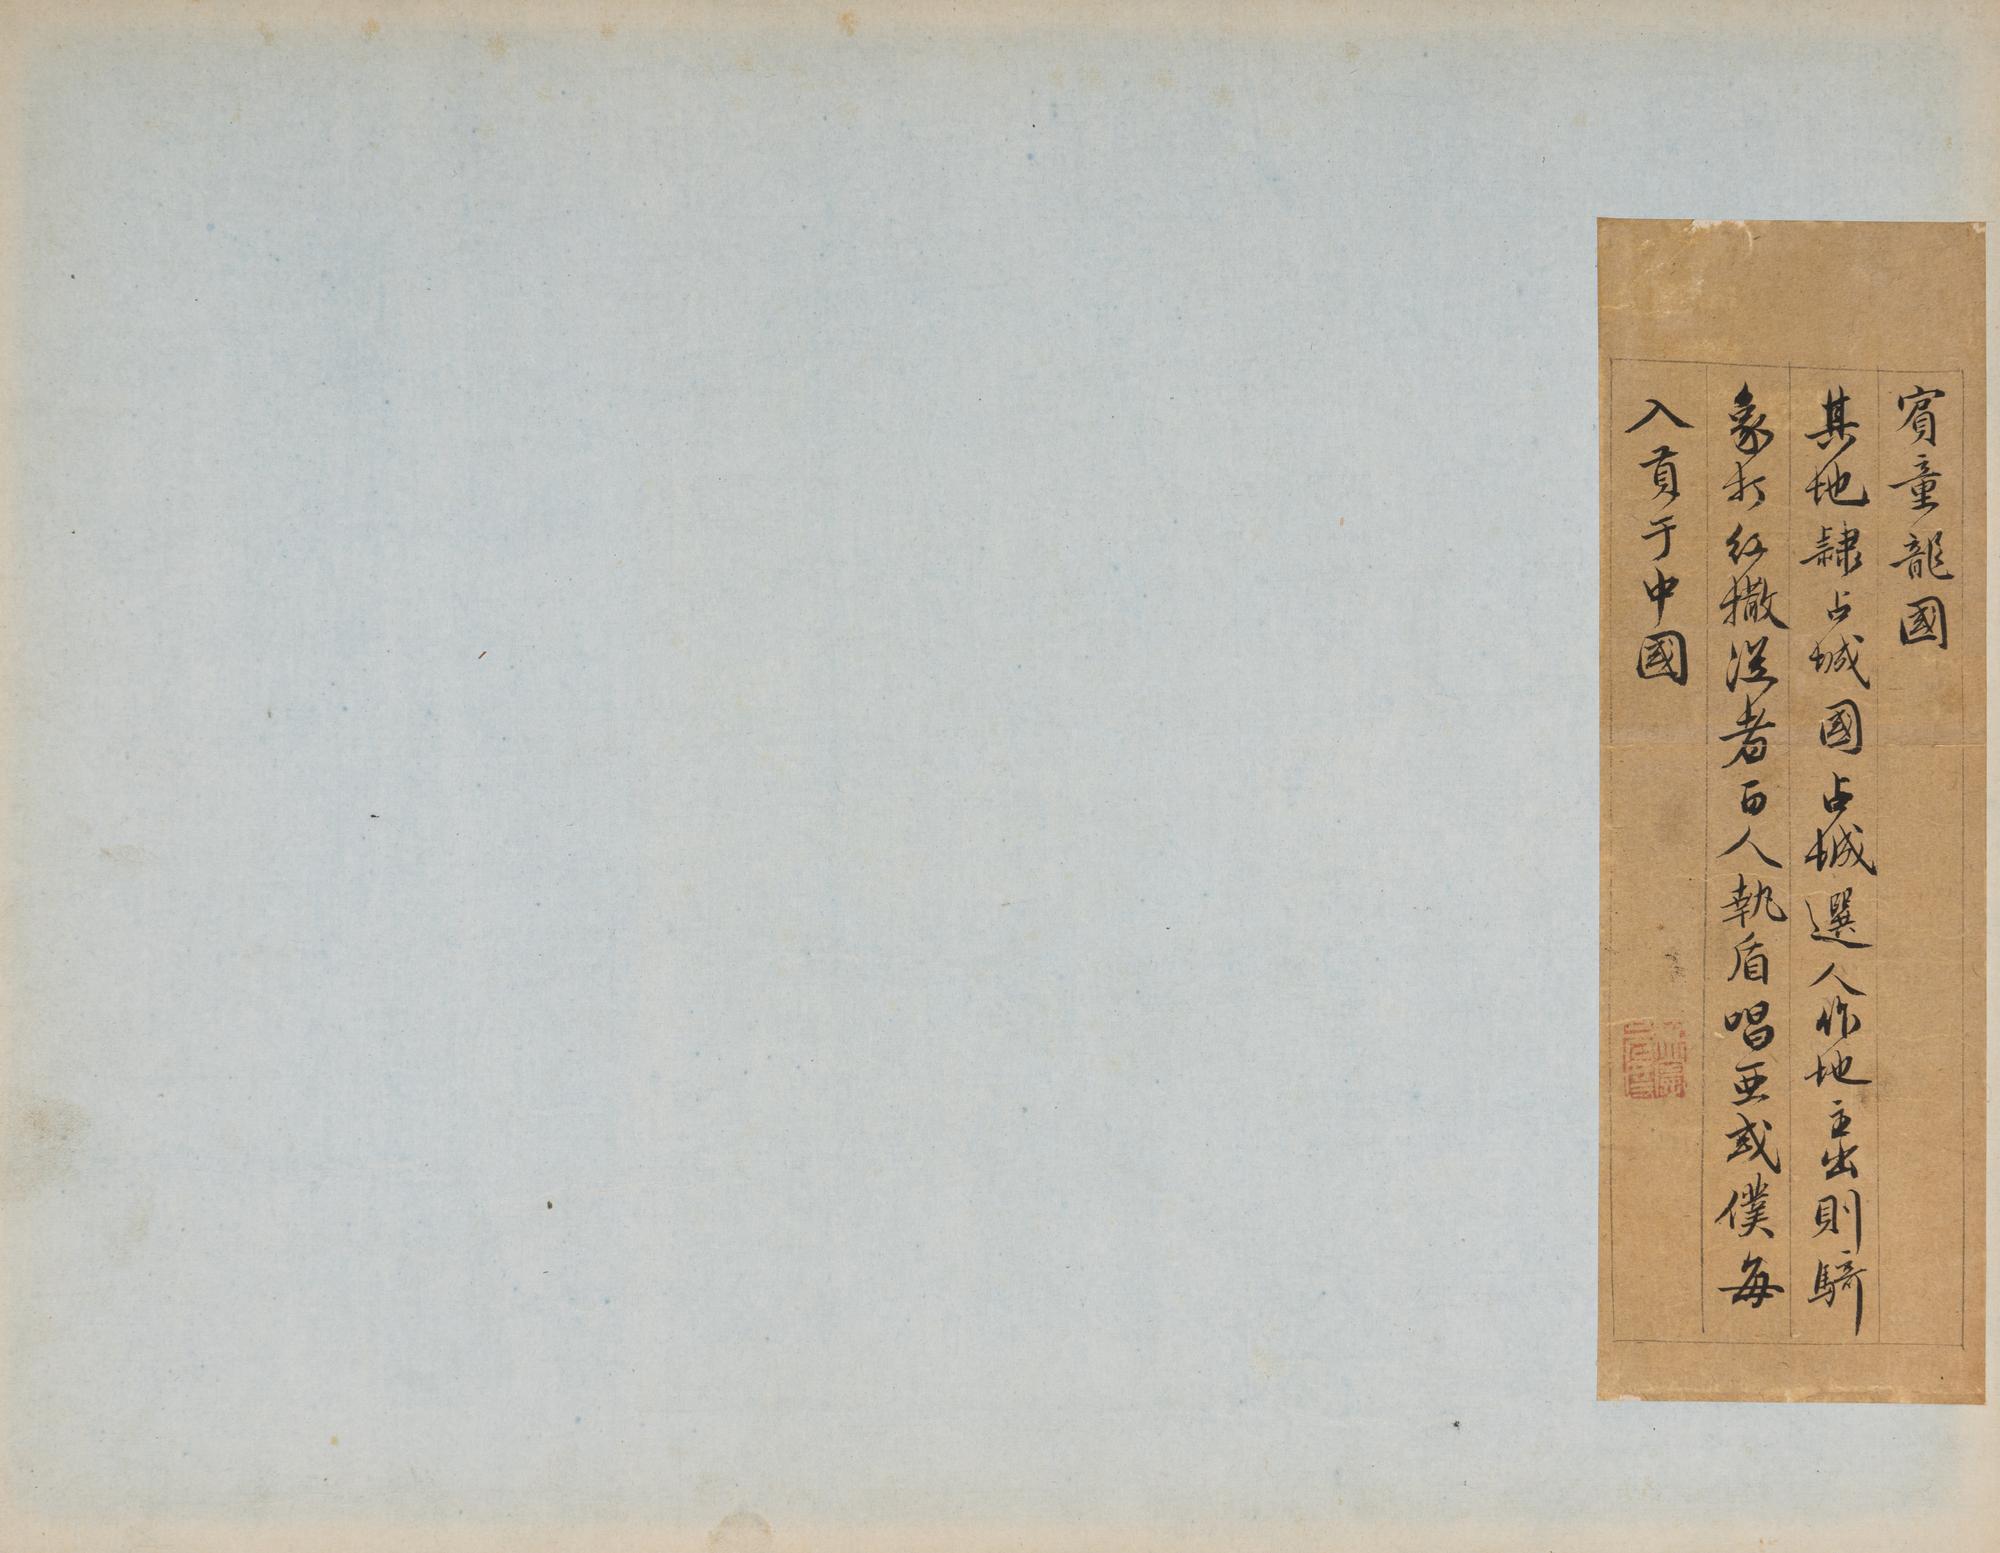 賓童龍國
其地隷占城國占城選人作地主出則騎
象打紅撒從者百人執盾唱亜或僕每
入貢于中國